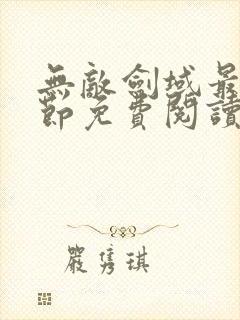 無敵劍域最
節免費閱讀
嚴隽琪